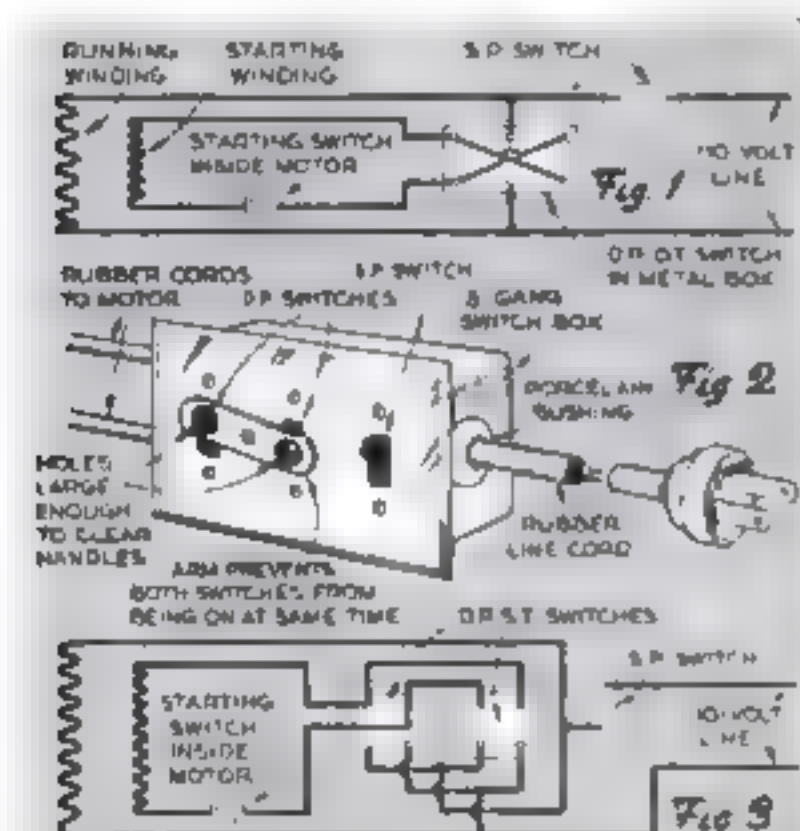 RUNNING WINDING
STARTING WINDING
S.P. SWITCH
STARTING SWITCH
INSIDE MOTOR
110 VOLT
LINE
Fig. 1
D.P. D.T. SWITCH
IN METAL BOX
RUBBER CORDS
TO MOTOR
D.P. SWITCHES
S.P. SWITCH
GANG
SWITCH BOX
PORCELAIN
BUSHING
Fig 2
HOLES
LARGE
ENOUGH
TO CLEAR
HANDLES
RUBBER
LINE CORD
ARM PREVENTS
BOTH SWITCHES FROM
BEING ON AT SAME TIME
D.P. S.T. SWITCHES
S.P. SWITCH
STARTING
SWITCH
INSIDE
MOTOR
110-VOLT
LINE
Fig 3